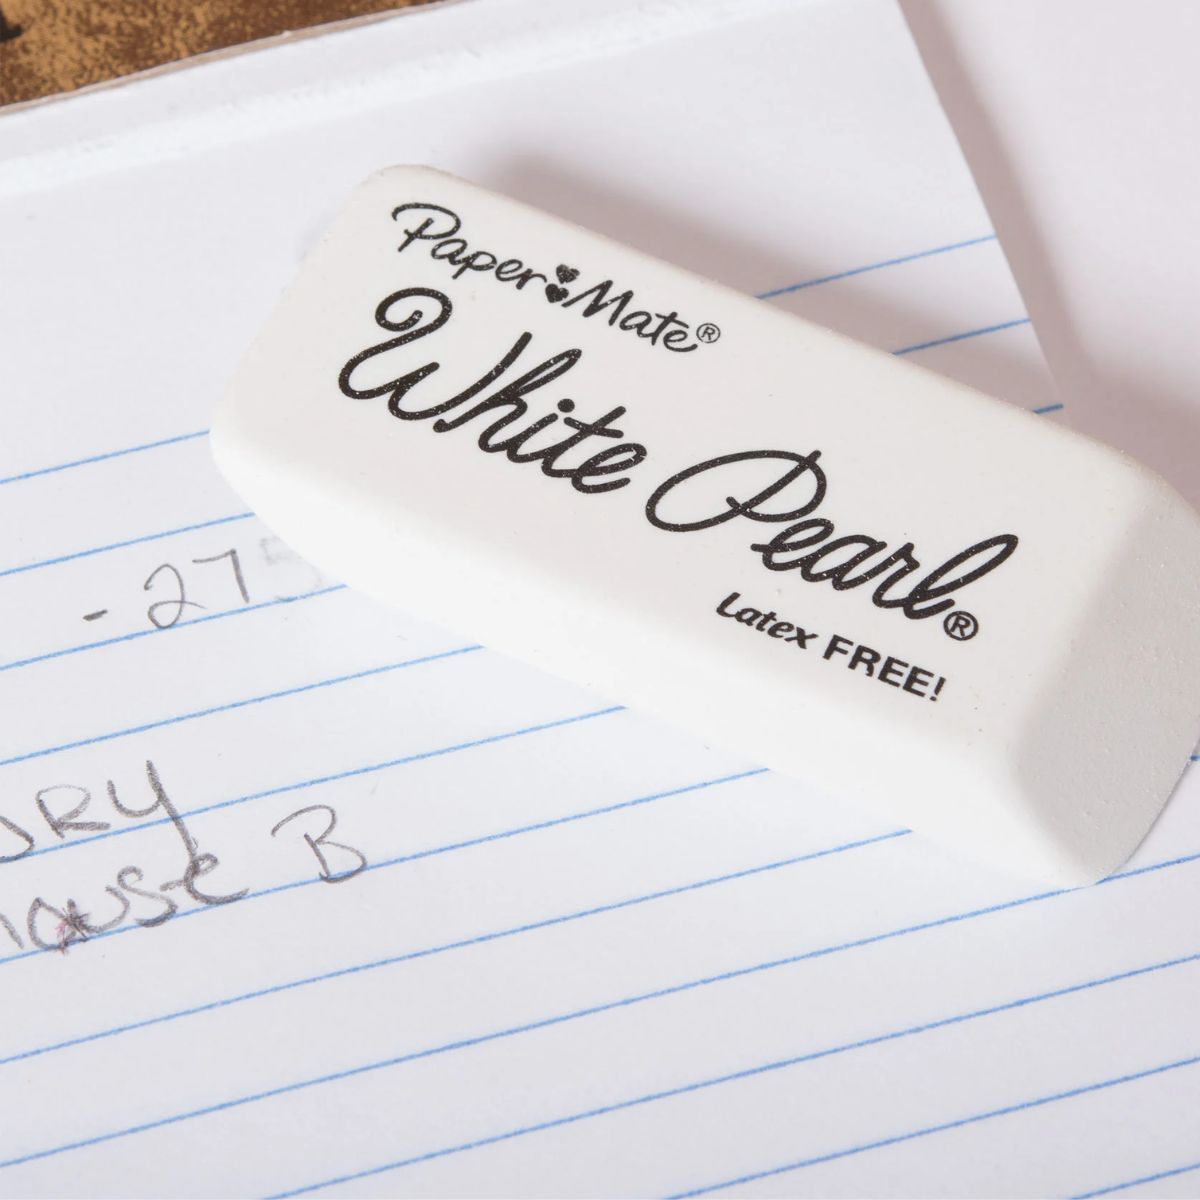 Paper Mate®
White Pearl®
Latex FREE!
- 275
B